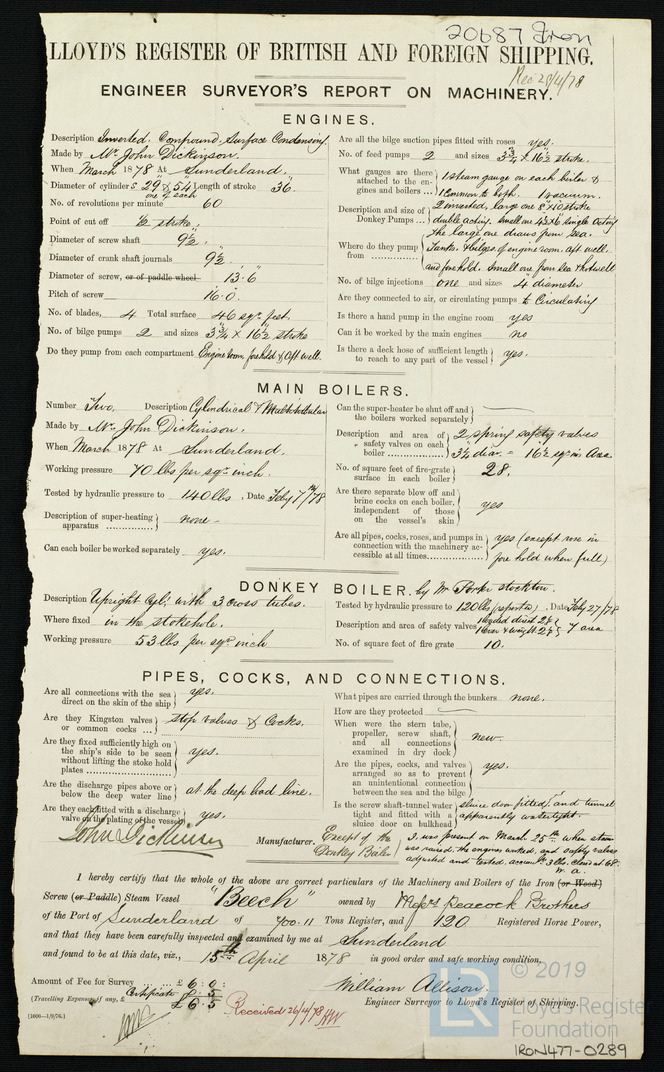 20687 Iron
LLOYD'S REGISTER OF BRITISH AND FOREIGN SHIPPING.
Rec 29/4/78
ENGINEER SURVEYOR'S REPORT ON MACHINERY.
ENGINES.
Description Inverted, Compound, Surface Condensing
Made by Mr. John Dickinson.
When March 1878 At Sunderland.
Diameter of cylinders 29" & 54" Length of stroke 36"
one of each
No. of revolutions per minute 60
Point of cut off ½ stroke.
Diameter of screw shaft 9½"
Diameter of crank shaft journals 9½"
Diameter of screw, or of paddle wheel 13.6
Pitch of screw 16.0.
No. of blades, 4 Total surface 46 sqr. feet.
No. of bilge pumps 2 and sizes 3¾ × 16½ stroke
Do they pump from each compartment Engine room, forehold & aft well.
Are all the bilge suction pipes fitted with roses yes.
No. of feed pumps 2 and sizes 3¾ × 16½ stroke.
What gauges are there attached to the engines and boilers ... 1 steam gauge on each boiler & 1 common to both. 1 vacuum.
Description and size of Donkey Pumps ... 2 inverted, large one 8 × 10 stroke double acting. Small one 4½ × 6 single acting
Where do they pump from ... The large one draws from sea. Tanks & bilges of engine room, aft well. and forehold. Small one from sea & hotwell
No. of bilge injections one and sizes 4" diameter
Are they connected to air, or circulating pumps to Circulating
Is there a hand pump in the engine room yes
Can it be worked by the main engines no
Is there a deck hose of sufficient length to reach to any part of the vessel yes.
MAIN BOILERS.
Number Two, Description Cylindrical & Multitubular
Made by Mr. John Dickinson.
When March 1878 At Sunderland.
Working pressure 70 lbs per sqr. inch.
Tested by hydraulic pressure to 140 lbs, Date Feby 7th/78
Description of super-heating apparatus ... none
Can each boiler be worked separately yes.
Can the super-heater be shut off and the boilers worked separately
Description and area of safety valves on each boiler ... 2 spring safety valves 3¼ dia. = 16½ sq in area
No. of square feet of fire-grate surface in each boiler 28.
Are there separate blow off and brine cocks on each boiler, independent of those on the vessel's skin yes
Are all pipes, cocks, roses, and pumps in connection with the machinery accessible at all times ... yes (except rose in fore hold when full)
DONKEY BOILER. by Mr Stockton.
Description Upright Cyl: with 3 cross tubes.
Where fixed in the stokehole.
Working pressure 53 lbs per sqr. inch
Tested by hydraulic pressure to 120 lbs (reported), Date Feby 27/78
Description and area of safety valves 1 loaded direct 1 lever & weight 7 area
No. of square feet of fire grate 10.
PIPES, COCKS, AND CONNECTIONS.
Are all connections with the sea direct on the skin of the ship yes.
Are they Kingston valves or common cocks ... stop valves & Cocks.
Are they fixed sufficiently high on the ship's side to be seen without lifting the stoke hold plates ... yes.
Are the discharge pipes above or below the deep water line at the deep load line.
Are they each fitted with a discharge valve on the plating of the vessel yes.
What pipes are carried through the bunkers none.
How are they protected
When were the stern tube, propeller, screw shaft, and all connections examined in dry dock new.
Are the pipes, cocks, and valves arranged so as to prevent an unintentional connection between the sea and the bilge yes.
Is the screw shaft-tunnel water tight and fitted with a sluice door on bulkhead sluice door fitted, and tunnel apparently watertight.
John Dickinson Manufacturer. Except of the Donkey Boiler
I was present on March 25th when steam was raised, the engines worked, and safety valves adjusted and tested. accum. 3 lbs. closed at 68. W. A.
I hereby certify that the whole of the above are correct particulars of the Machinery and Boilers of the Iron (or Wood)
Screw (or Paddle) Steam Vessel "Beech" owned by Messrs Peacock Brothers
of the Port of Sunderland of 700.11 Tons Register, and 120 Registered Horse Power,
and that they have been carefully inspected and examined by me at Sunderland
and found to be at this date, viz., 15th April 1878 in good order and safe working condition.
Amount of Fee for Survey ... £ 6 : 0 :
(Travelling Expenses if any, £ Certificate 5
£ 6 : 5
Received 26/4/78
William Allison.
Engineer Surveyor to Lloyd's Register of Shipping.
[1000—1/9/76.]
LR
© 2019
Lloyd's Register
Foundation
IRON477-0289